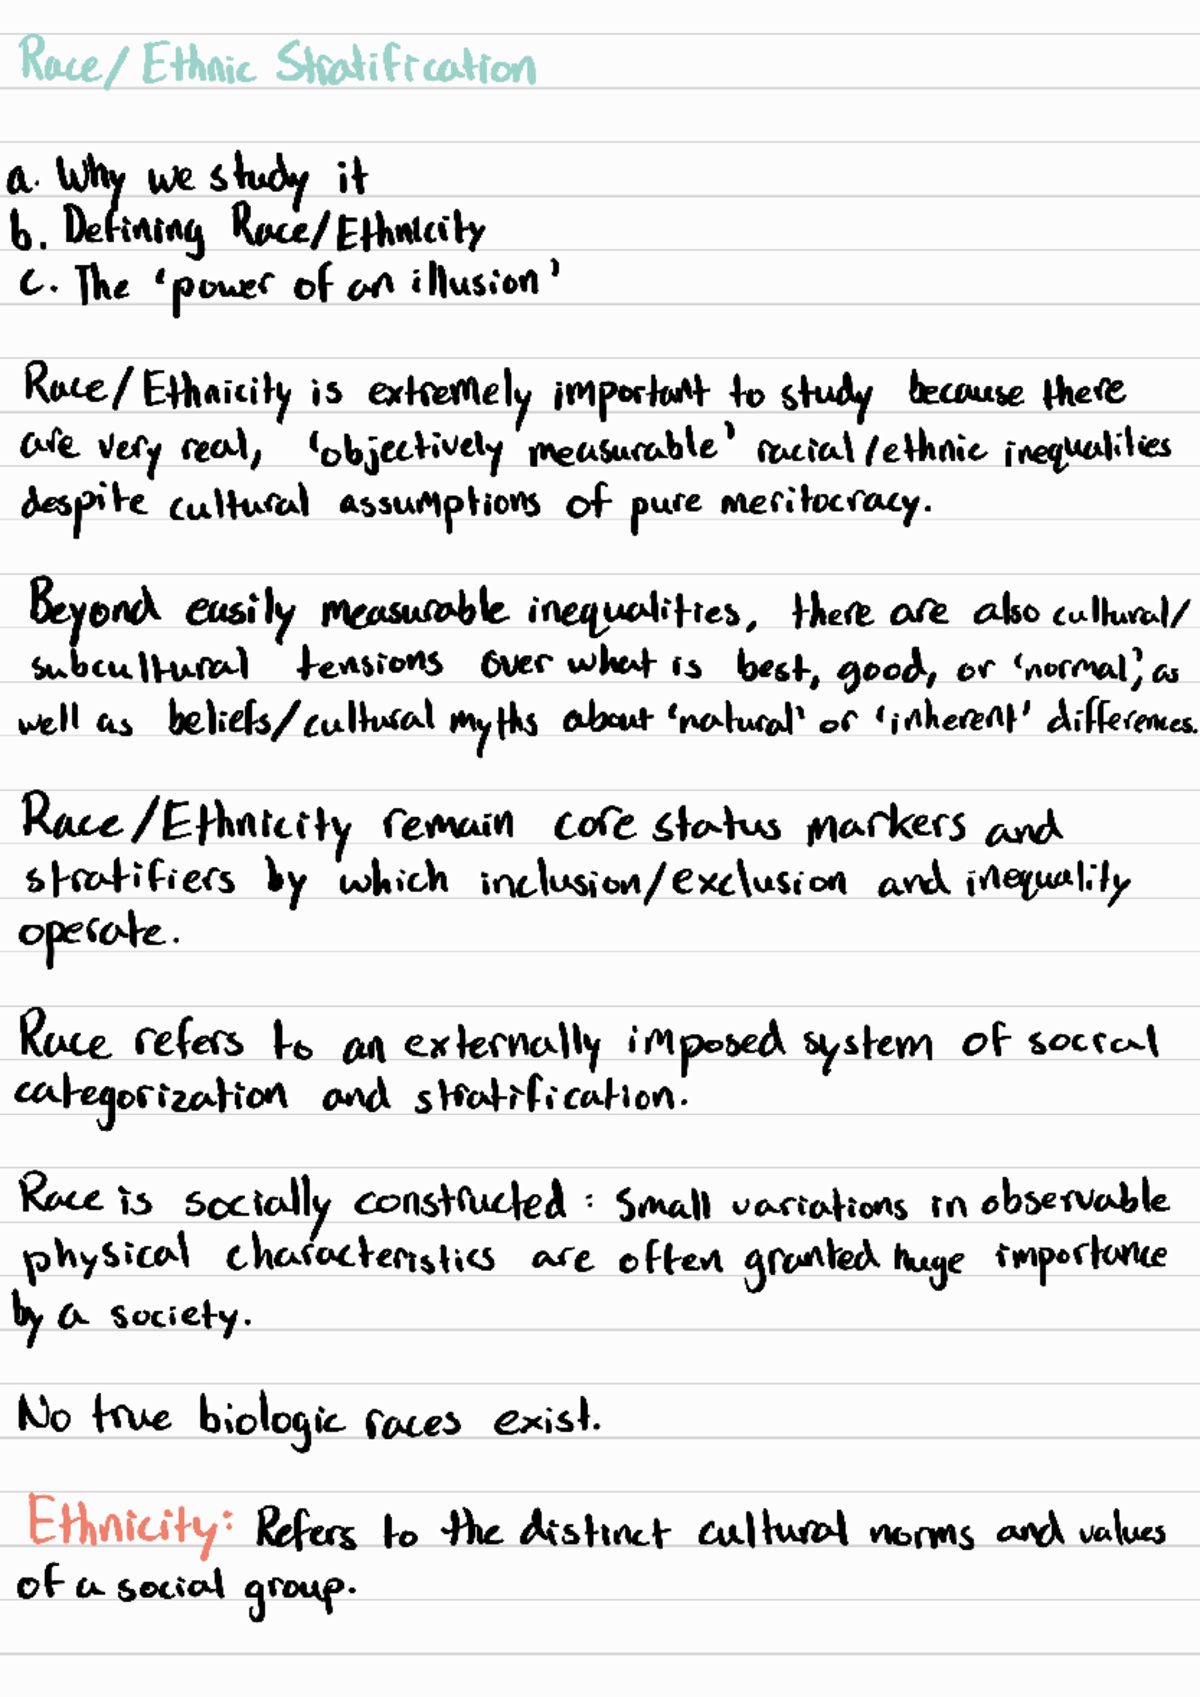 Race/ Ethnic Stratification
a. Why we study it
b. Defining Race/Ethnicity
c. The 'power of an illusion'
Race/Ethnicity is extremely important to study because there
are very real, 'objectively measurable' racial/ethnic inequalities
despite cultural assumptions of pure meritocracy.
Beyond easily measurable inequalities, there are also cultural/
subcultural tensions over what is best, good, or 'normal', as
well as beliefs/cultural myths about 'natural' or 'inherent' differences.
Race/Ethnicity remain core status markers and
stratifiers by which inclusion/exclusion and inequality
operate.
Race refers to an externally imposed system of social
categorization and stratification.
Race is socially constructed: Small variations in observable
physical characteristics are often granted huge importance
by a society.
No true biologic races exist.
Ethnicity: Refers to the distinct cultural norms and values
of a social group.